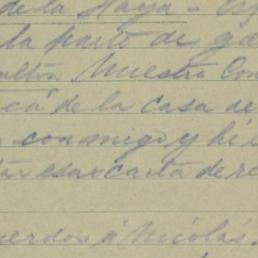 de la Haya - es
la parte de ga
Nuestro Con
cá de la casa de
conmigo y hi
esa carta de re
uerdos á Nicolás